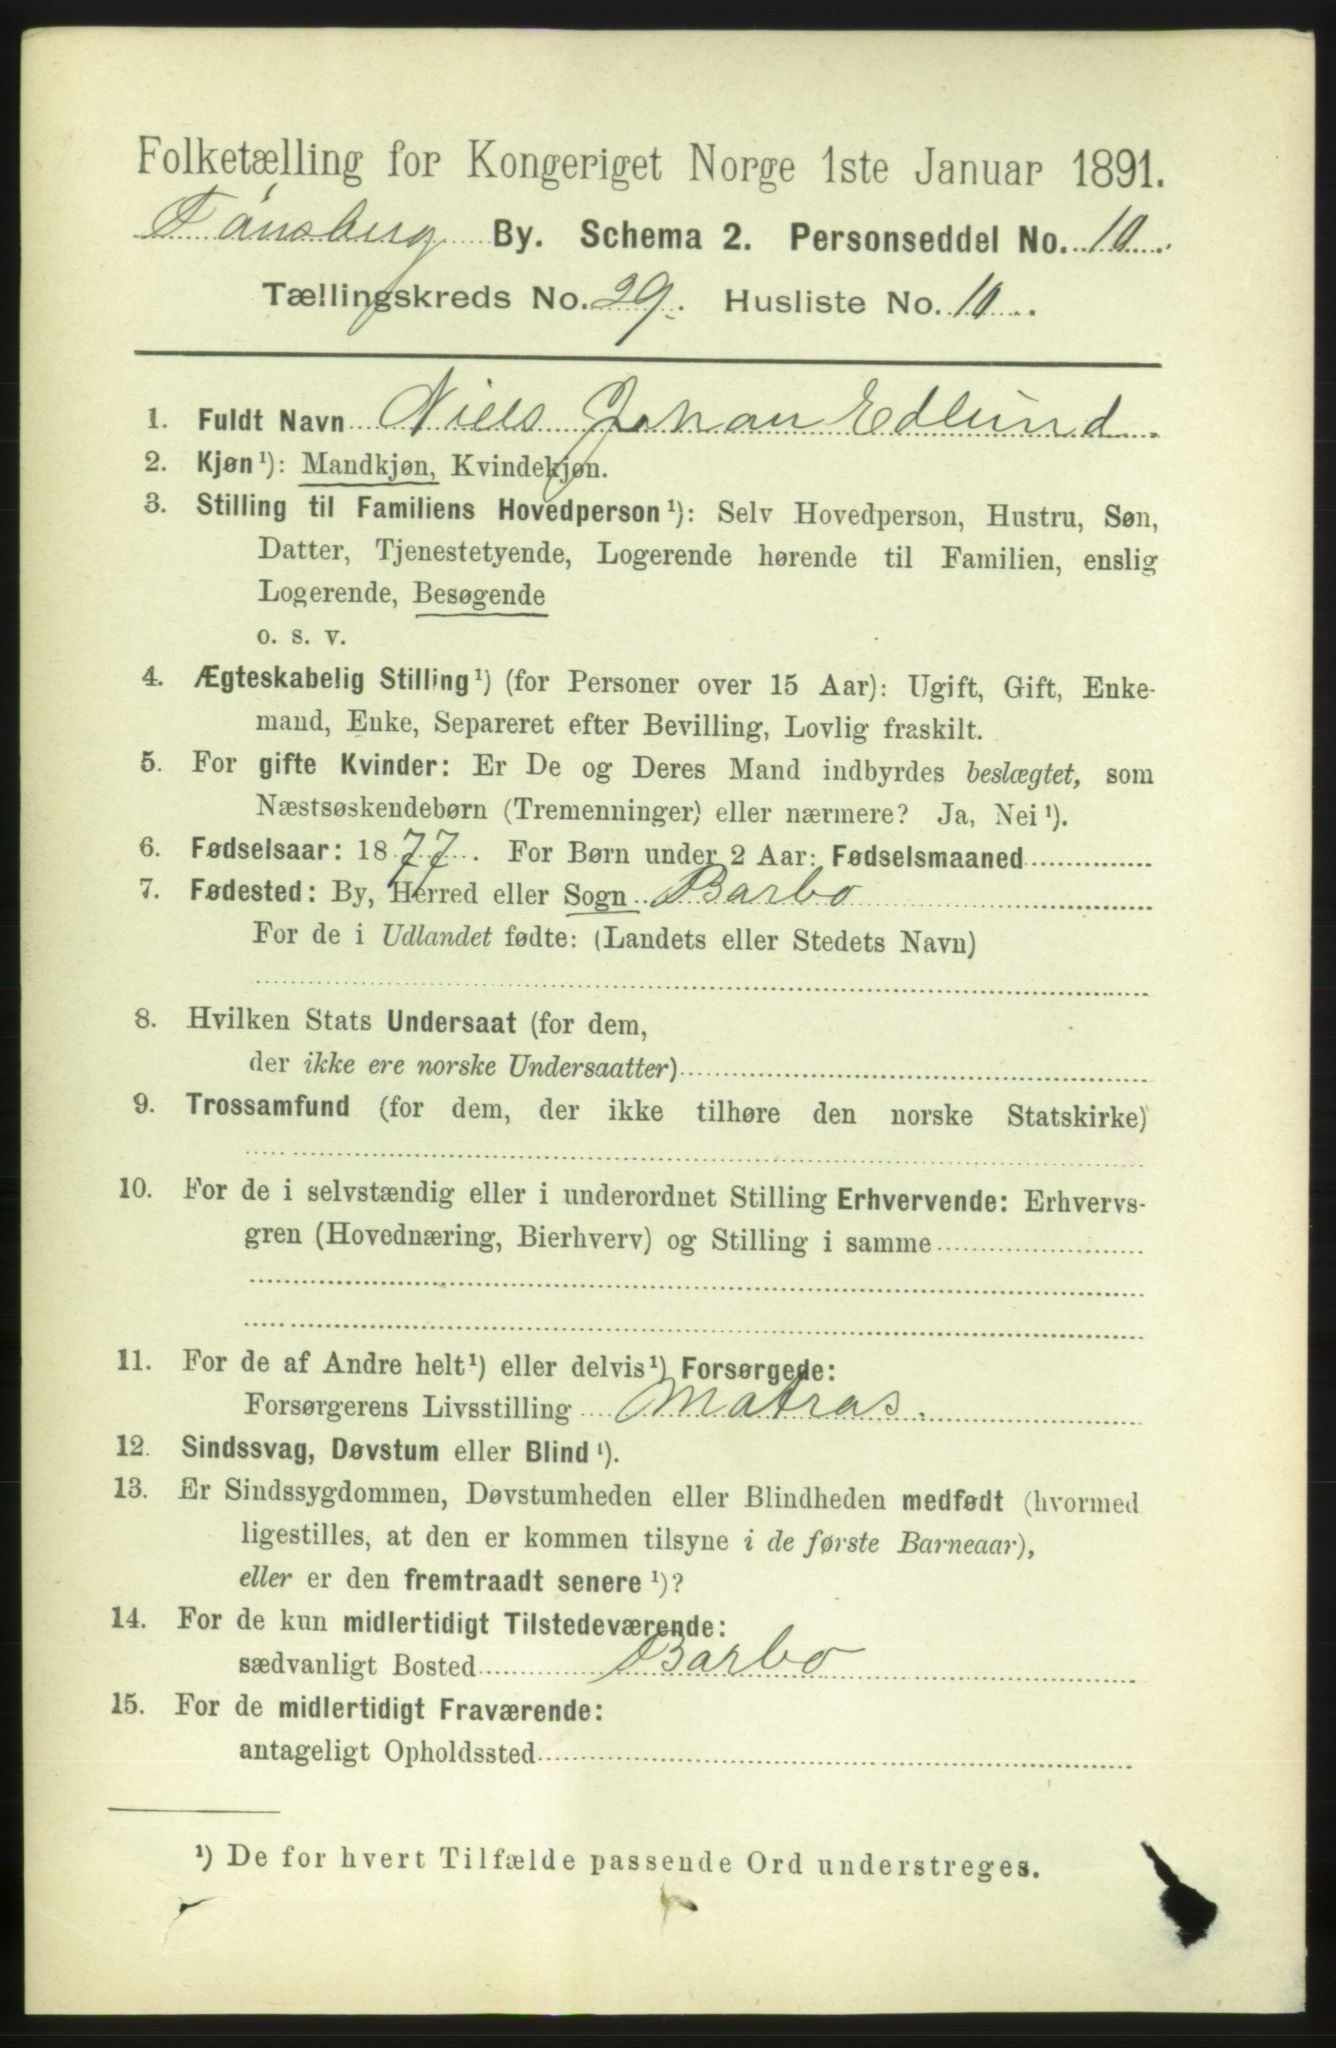 Folketælling for Kongeriget Norge 1ste Januar 1891.
Tønsberg By. Schema 2. Personseddel No. 10.
Tællingskreds No. 29. Husliste No. 10.
1. Fuldt Navn Niels Johan Edlund.
2. Kjøn ¹): Mandkjøn, Kvindekjøn.
3. Stilling til Familiens Hovedperson ¹): Selv Hovedperson, Hustru, Søn,
Datter, Tjenestetyende, Logerende hørende til Familien, enslig
Logerende, Besøgende
o. s. v.
4. Ægteskabelig Stilling ¹) (for Personer over 15 Aar): Ugift, Gift, Enke-
mand, Enke, Separeret efter Bevilling, Lovlig fraskilt.
5. For gifte Kvinder: Er De og Deres Mand indbyrdes beslægtet, som
Næstsøskendebørn (Tremenninger) eller nærmere? Ja, Nei ¹).
6. Fødselsaar: 1877. For Børn under 2 Aar: Fødselsmaaned
7. Fødested: By, Herred eller Sogn Barbo
For de i Udlandet fødte: (Landets eller Stedets Navn)
8. Hvilken Stats Undersaat (for dem,
der ikke ere norske Undersaatter)
9. Trossamfund (for dem, der ikke tilhøre den norske Statskirke)
10. For de i selvstændig eller i underordnet Stilling Erhvervende: Erhvervs-
gren (Hovednæring, Bierhverv) og Stilling i samme
11. For de af Andre helt ¹) eller delvis ¹) Forsørgede:
Forsørgerens Livsstilling Matros.
12. Sindssvag, Døvstum eller Blind ¹).
13. Er Sindssygdommen, Døvstumheden eller Blindheden medfødt (hvormed
ligestilles, at den er kommen tilsyne i de første Barneaar),
eller er den fremtraadt senere ¹)?
14. For de kun midlertidigt Tilstedeværende:
sædvanligt Bosted Barbo
15. For de midlertidigt Fraværende:
antageligt Opholdssted
¹) De for hvert Tilfælde passende Ord understreges.